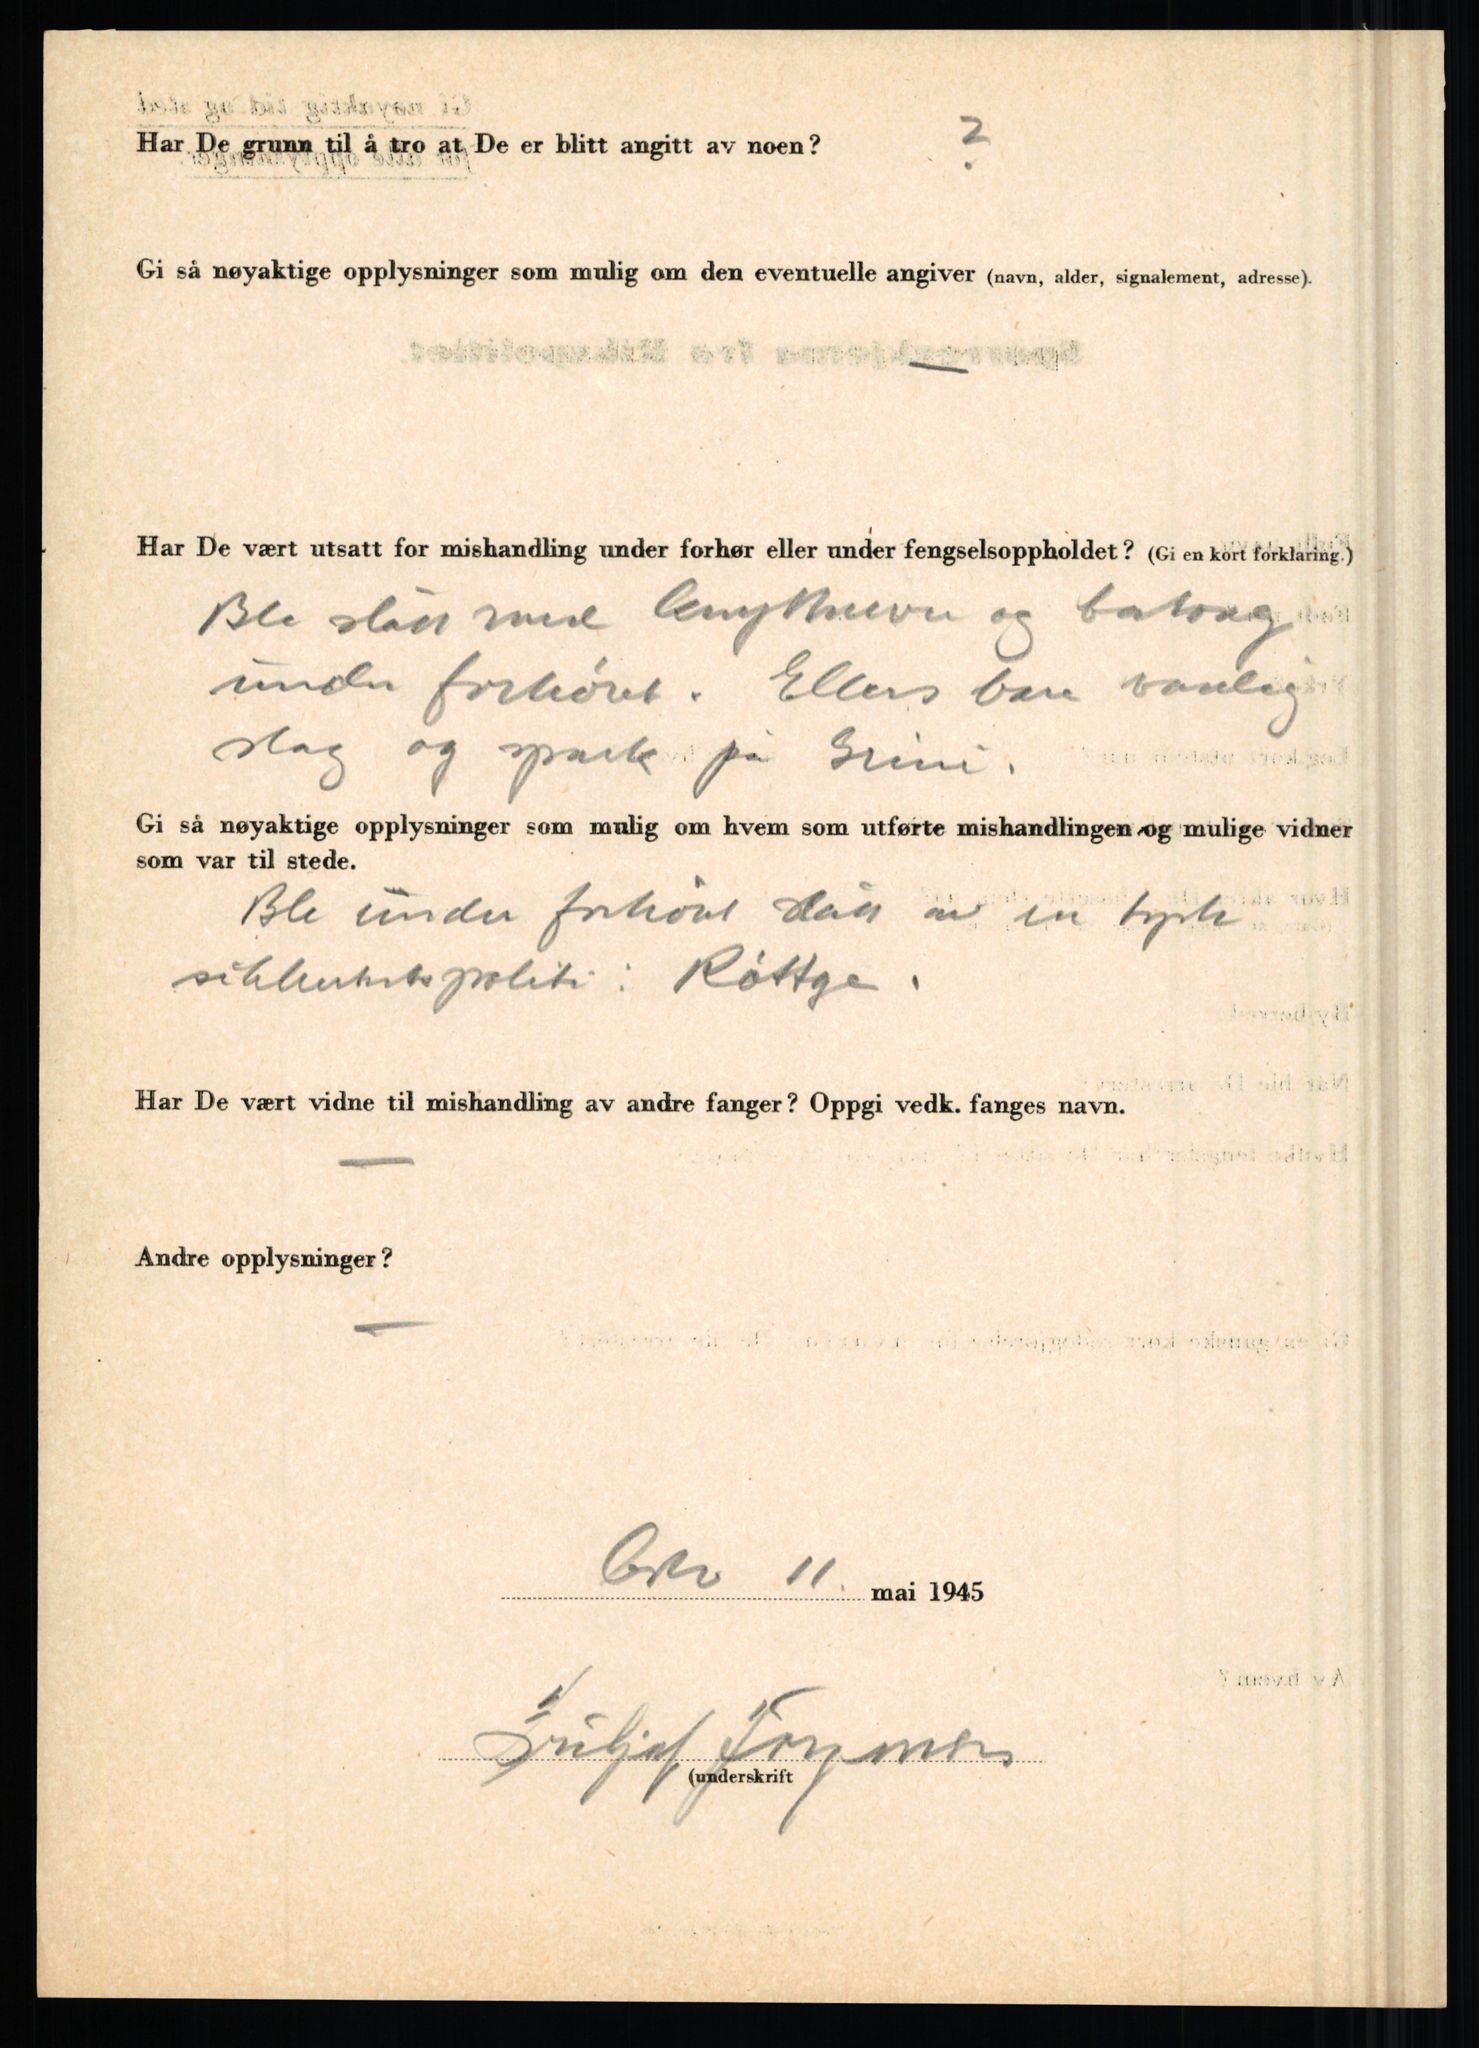 Har De grunn til å tro at De er blitt angitt av noen? ?
Gi så nøyaktige opplysninger som mulig om den eventuelle angiver (navn, alder, signalement, adresse).
—
Har De vært utsatt for mishandling under forhør eller under fengselsoppholdet? (Gi en kort forklaring.)
Ble slått med knyttneve og batong
under forhöret. Ellers bare vanlig
slag og spark på Grini.
Gi så nøyaktige opplysninger som mulig om hvem som utførte mishandlingen og mulige vidner
som var til stede.
Ble under forhöret slått av en tysk
sikkerhetspoliti: Röttge.
Har De vært vidne til mishandling av andre fanger? Oppgi vedk. fanges navn.
—
Andre opplysninger?
—
Oslo 11. mai 1945
(underskrift